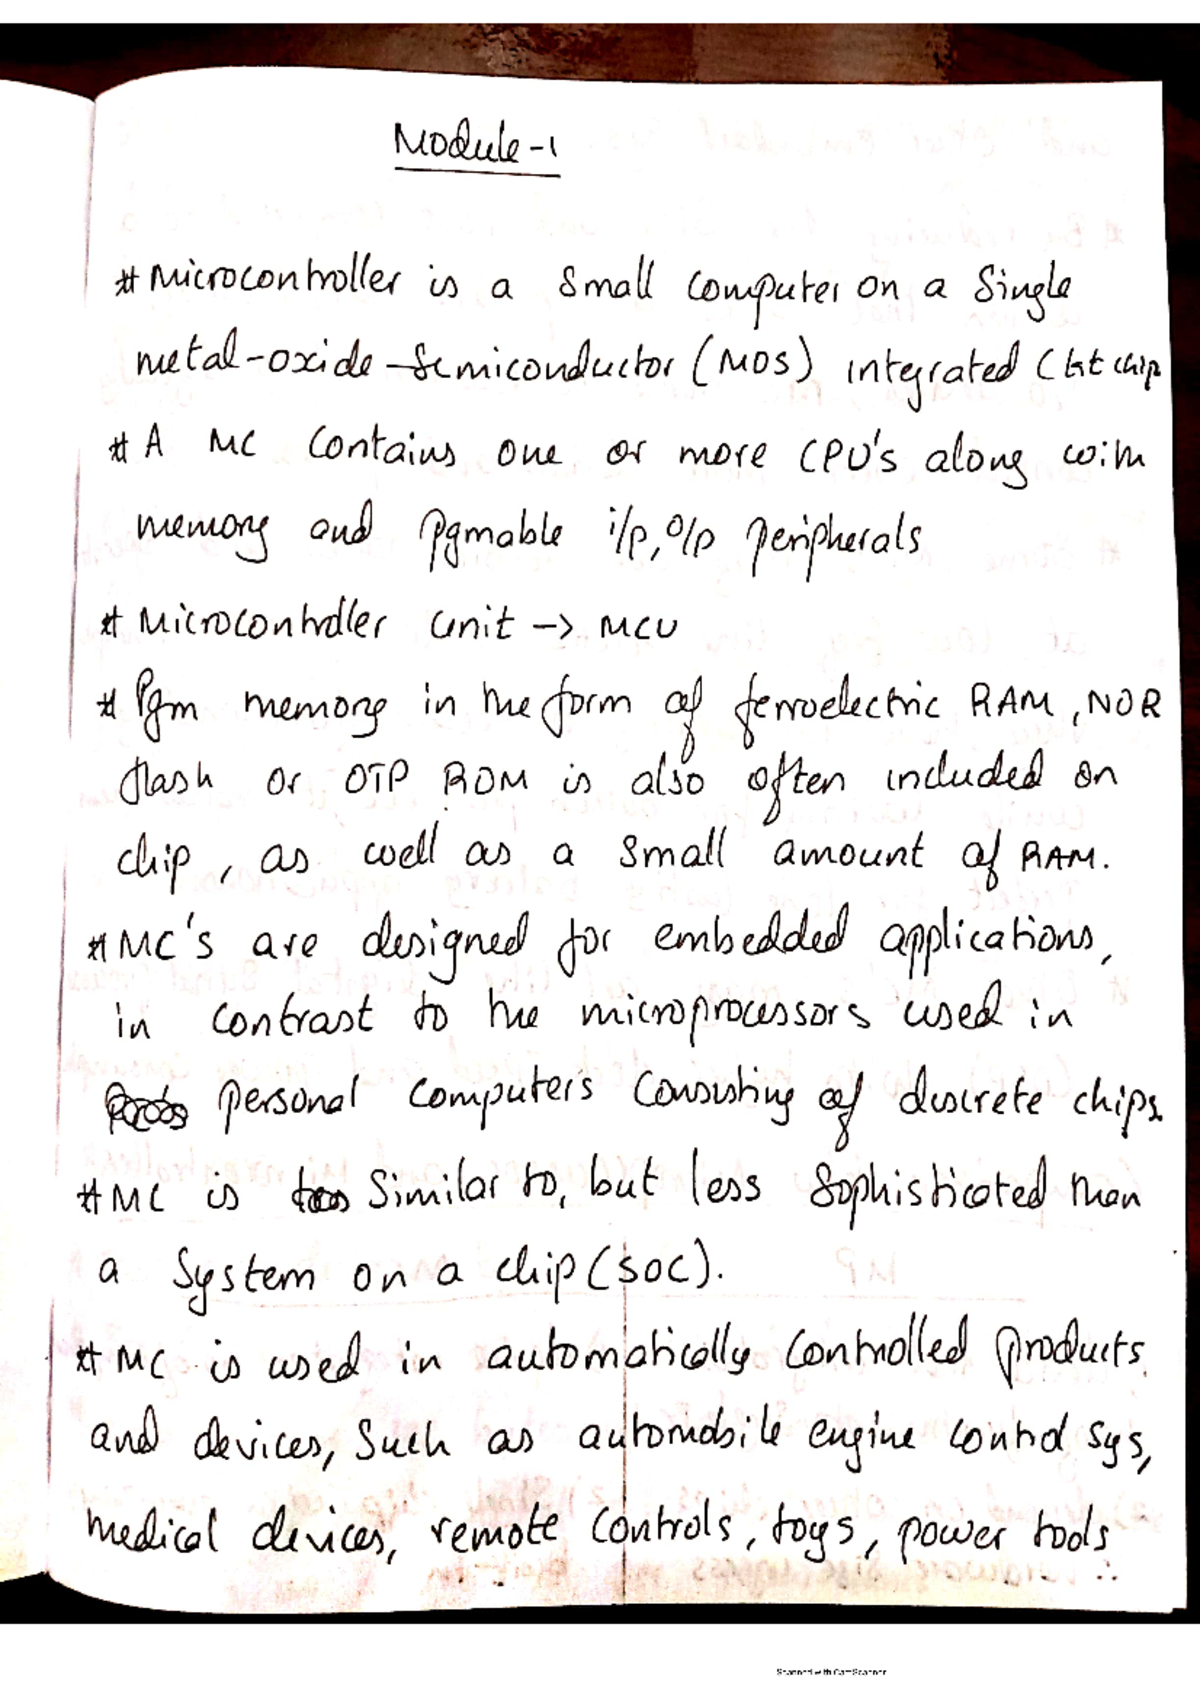 Module-1
# Microcontroller is a small computer on a single
metal-oxide-semiconductor (MOS) integrated Ckt chip
# A MC contains one or more CPU's along with
memory and pgmable i/p, o/p peripherals
# Microcontroller unit -> MCU
# Pgm memory in the form of ferroelectric RAM, NOR
flash or OTP ROM is also often included on
chip, as well as a small amount of RAM.
# MC's are designed for embedded applications,
in contrast to the microprocessors used in
personal computers consisting of discrete chips.
# MC is similar to, but less sophisticated than
a system on a chip (SOC).
# MC is used in automatically controlled products
and devices, such as automobile engine control sys,
medical devices, remote controls, toys, power tools
Scanned with CamScanner